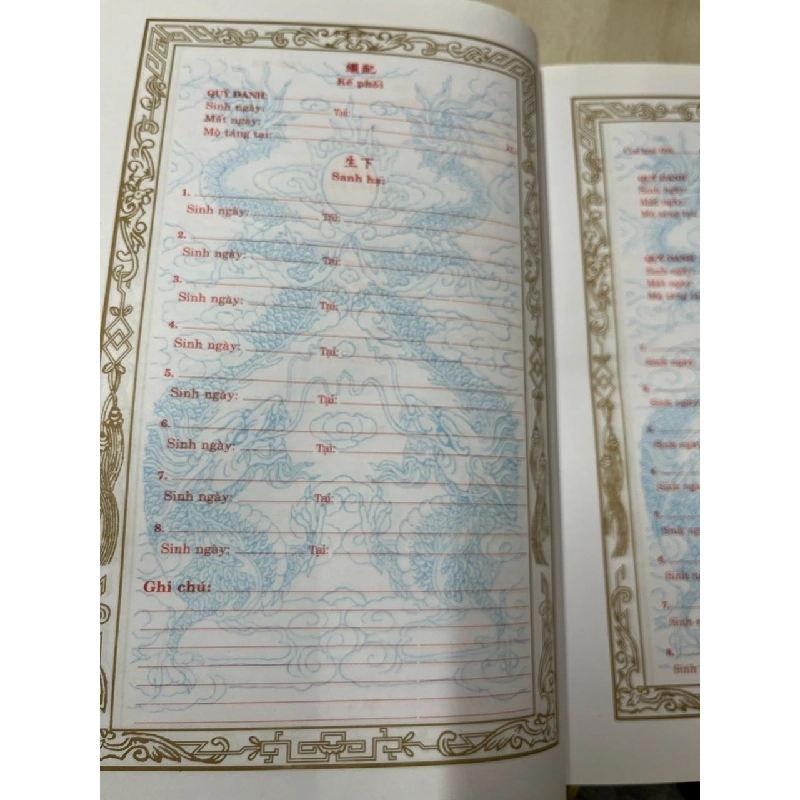 繼配
Kế phối
QUÝ DANH:
Sinh ngày: Tại:
Mất ngày:
Mộ táng tại:
生下
Sanh hạ:
1.
Sinh ngày: Tại:
2.
Sinh ngày: Tại:
3.
Sinh ngày: Tại:
4.
Sinh ngày: Tại:
5.
Sinh ngày: Tại:
6.
Sinh ngày: Tại:
7.
Sinh ngày: Tại:
8.
Sinh ngày: Tại:
Ghi chú:
QUÝ DANH
Sinh ngày:
Mất ngày:
Mộ táng tại
QUÝ DANH
Sinh ngày:
Mất ngày:
Mộ táng
Sinh ngày:
Sinh ngày:
Sinh ngày
Sinh ngày
5.
Sinh ngày
6.
Sinh ngày
7.
Sinh
8.
Sinh